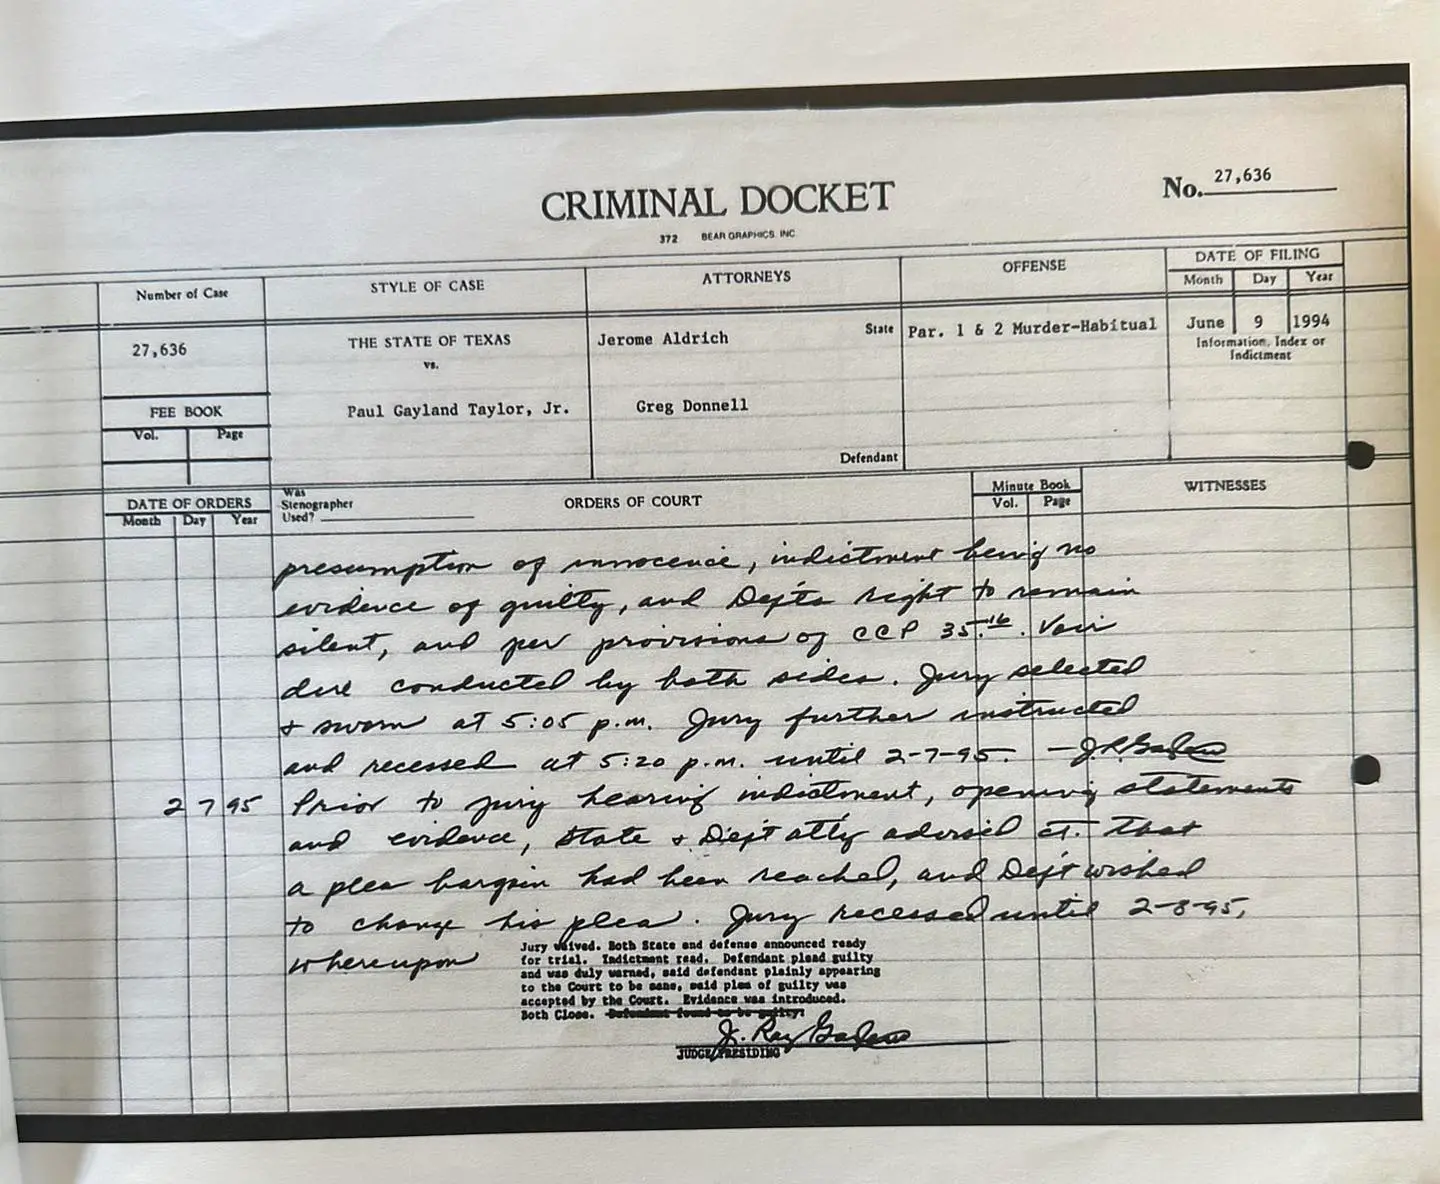 CRIMINAL DOCKET
No. 27,636
372 BEAR GRAPHICS INC
Number of Case
STYLE OF CASE
ATTORNEYS
OFFENSE
DATE OF FILING
Month Day Year
27,636
THE STATE OF TEXAS
vs.
Paul Gayland Taylor, Jr.
Jerome Aldrich
State
Greg Donnell
Defendant
Par. 1 & 2 Murder-Habitual
June 9 1994
Information, Index or
Indictment
FEE BOOK
Vol. Page
DATE OF ORDERS
Month Day Year
Was
Stenographer
Used?
ORDERS OF COURT
Minute Book
Vol. Page
WITNESSES
presumption of innocence, indictment being no
evidence of guilty, and Def'ts right to remain
silent, and per provisions of CCP 35.16. Voir
dire conducted by both sides. Jury selected
& sworn at 5:05 p.m. Jury further instructed
and recessed at 5:20 p.m. until 2-7-95. —
2 7 95 Prior to jury hearing indictment, opening statements
and evidence, State & Def't att'y advised ct. that
a plea bargain had been reached, and Def't wished
to change his plea. Jury recessed until 2-8-95,
whereupon
Jury waived. Both State and defense announced ready
for trial. Indictment read. Defendant plead guilty
and was duly warned, said defendant plainly appearing
to the Court to be sane, said plea of guilty was
accepted by the Court. Evidence was introduced.
Both Close. Defendant found to be guilty:
J. Ray
JUDGE PRESIDING